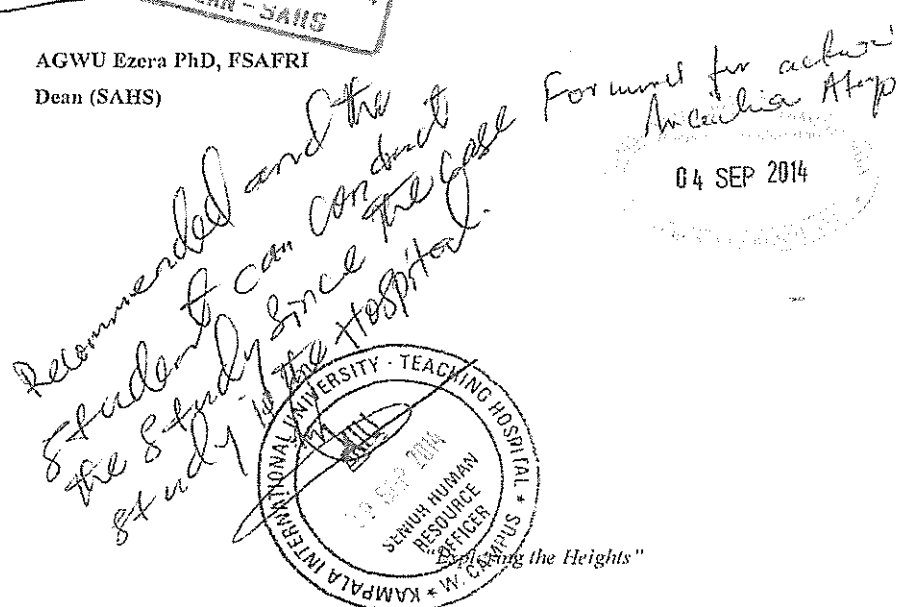 - SAHS
AGWU Ezera PhD, FSAFRI
Dean (SAHS)
Recommended and the
student can conduct
the study since the case
study is the Hospital.
for action
04 SEP 2014
KAMPALA INTERNATIONAL UNIVERSITY - TEACHING HOSPITAL * W. CAMPUS *
SEP 2014
SENIOR HUMAN
RESOURCE
OFFICER
"Exploring the Heights"